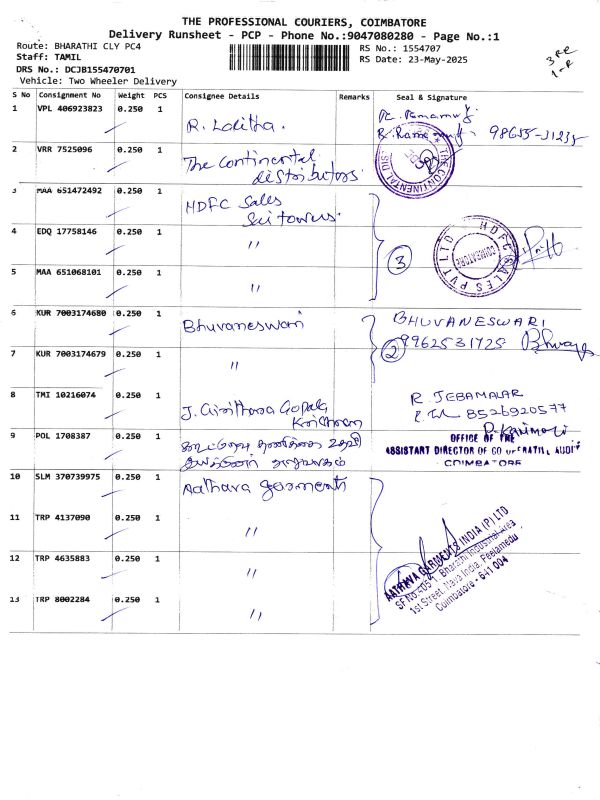 THE PROFESSIONAL COURIERS, COIMBATORE
Delivery Runsheet - PCP - Phone No.:9047080280 - Page No.:1
Route: BHARATHI CLY PC4
Staff: TAMIL
DRS No.: DCJB155470701
Vehicle: Two Wheeler Delivery
RS No.: 1554707
RS Date: 23-May-2025
S No Consignment No Weight PCS Consignee Details Remarks Seal & Signature
1 VPL 406923823 0.250 1 R. Lalitha.
98655-31235
2 VRR 7525096 0.250 1 The Continental
distributors
THE CONTINENTAL
3 MAA 651472492 0.250 1 HDFC Sales
Sri towers.
4 EDQ 17758146 0.250 1 "
3
HDFC SALES PVT LTD
COIMBATORE
5 MAA 651068101 0.250 1 "
6 KUR 7003174680 0.250 1 Bhuvaneswari
BHUVANESWARI
2 9962531725
7 KUR 7003174679 0.250 1 "
8 TMI 10216074 0.250 1 J.
R. JEBAMALAR
8526920577
9 POL 1708387 0.250 1
OFFICE OF THE
ASSISTANT DIRECTOR OF CO OPERATIVE AUDIT
COIMBATORE
10 SLM 370739975 0.250 1 Aathava garments
11 TRP 4137090 0.250 1 "
12 TRP 4635883 0.250 1 "
13 TRP 8002284 0.250 1 "
AATHAVA GARMENTS INDIA (P) LTD
SF No.405/ Bharathi Industrial Area
1st Street, Nava India, Peelamedu
Coimbatore - 641 004